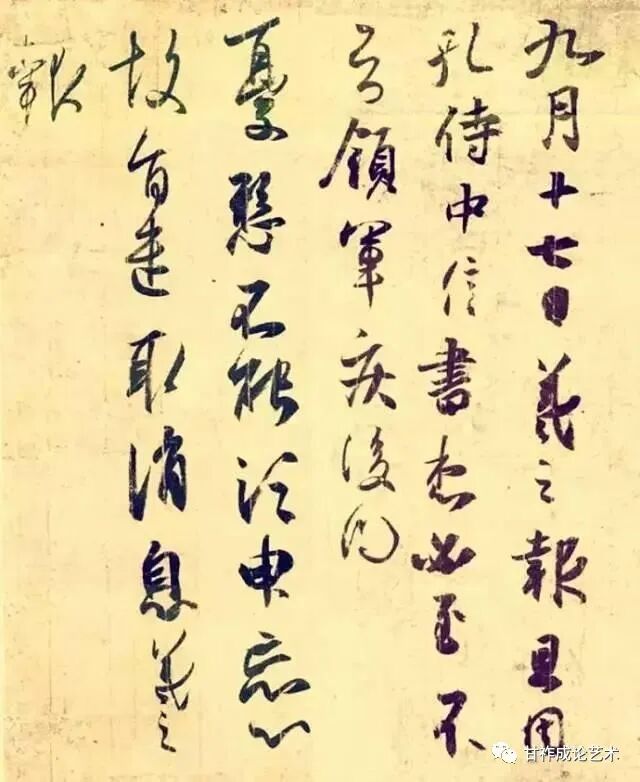 九月十七日羲之報且因
孔侍中信書想必至不
知領軍疾後問
憂懸不能須臾忘心
故旨遣取消息羲之
報
甘祚成论艺术